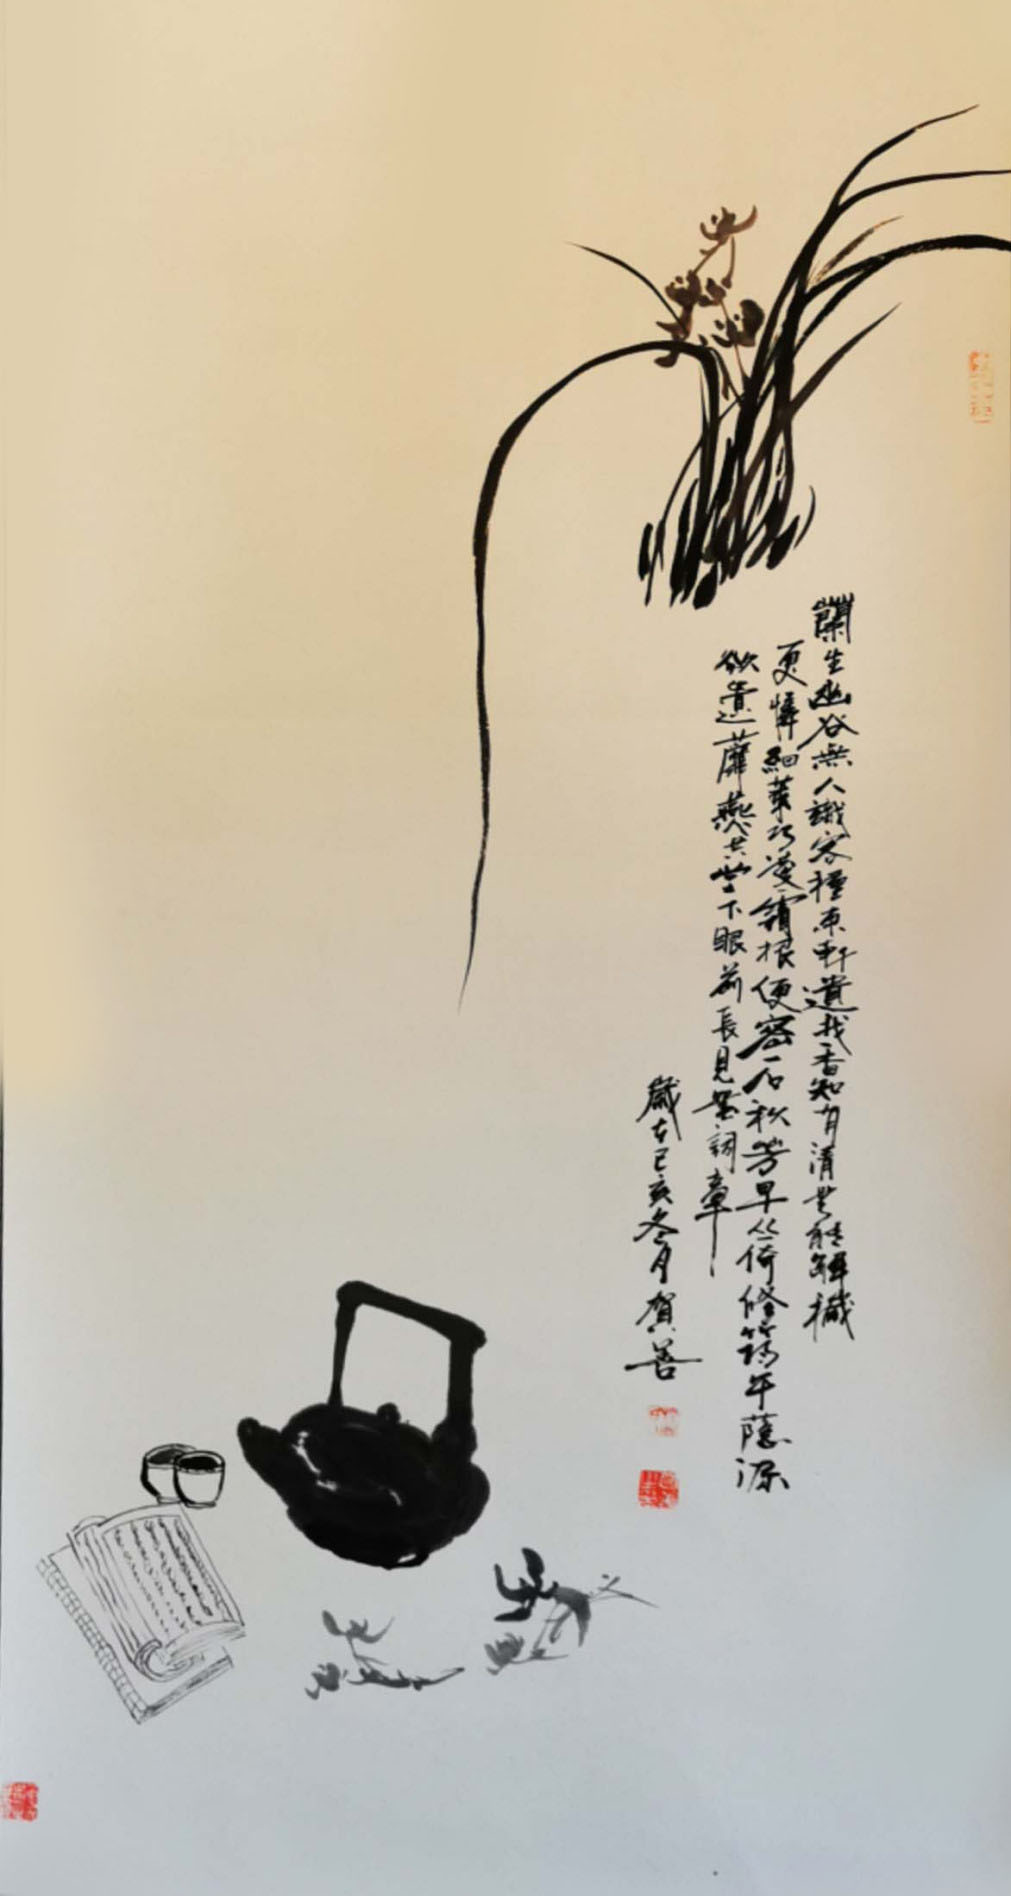 蘭生幽谷無人識客種東軒遺我香知有清芬能解穢
更憐細葉巧凌霜根便密石秋芳早丛倚修筠午蔭涼
欲遣蘼蕪共堂下眼前長見楚詞章
歲在己亥冬月賀善